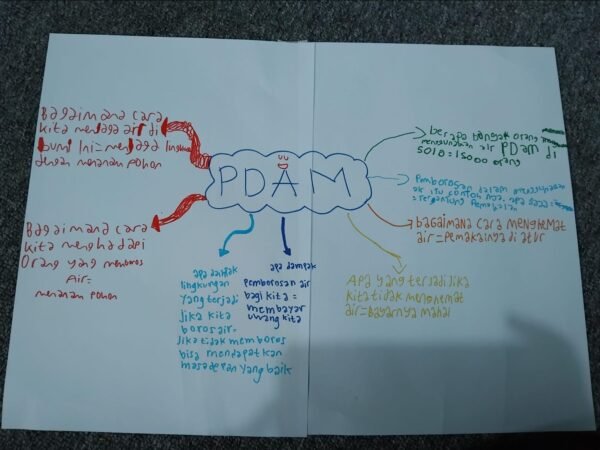 Bagaimana cara
kita menjaga air di
bumi Ini = menjaga
dengan menanam pohon
Bagaimana cara
kita menghadapi
Orang yang memboros
Air=
menanam pohon
PDAM
apa dampak
lingkungan
yang terjadi
Jika kita
boros air=
Jika tidak memboros
bisa mendapatkan
masadepan yang baik
apa dampak
pemborosan air
bagi kita =
membayar
uwang kita
berapa banyak orang
menggunakan air PDAM di
= 15000 orang
Pemborosan dalam
itu contoh nya, apa saja
bagaimana cara menghemat
air = Pemakainya di atur
Apa yang terjadi Jika
kita tidak menghemat
air = Bayarnya mahal